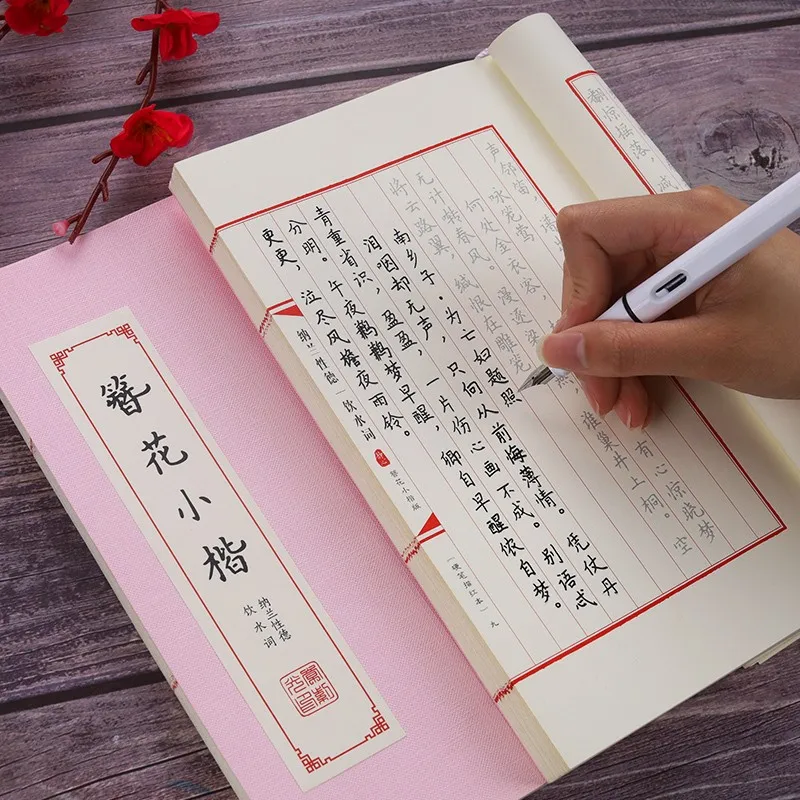 簪花小楷
纳兰性德
饮水词
翻惊摇落,减
声邻笛,墙
咏笼莺
何处金衣客,
有心惊晓梦
无计啭春风。漫逐梁
谁巢井上桐。空
将云路翼,缄恨在雕笼。
南乡子·为亡妇题照
泪咽却无声,只向从前悔薄情。凭仗丹
青重省识,盈盈,一片伤心画不成。别语忒
分明。午夜鹣鹣梦早醒,卿自早醒侬自梦。
更更,泣尽风檐夜雨铃。
纳兰性德 饮水词
簪花小楷版
(硬笔描红本)
九